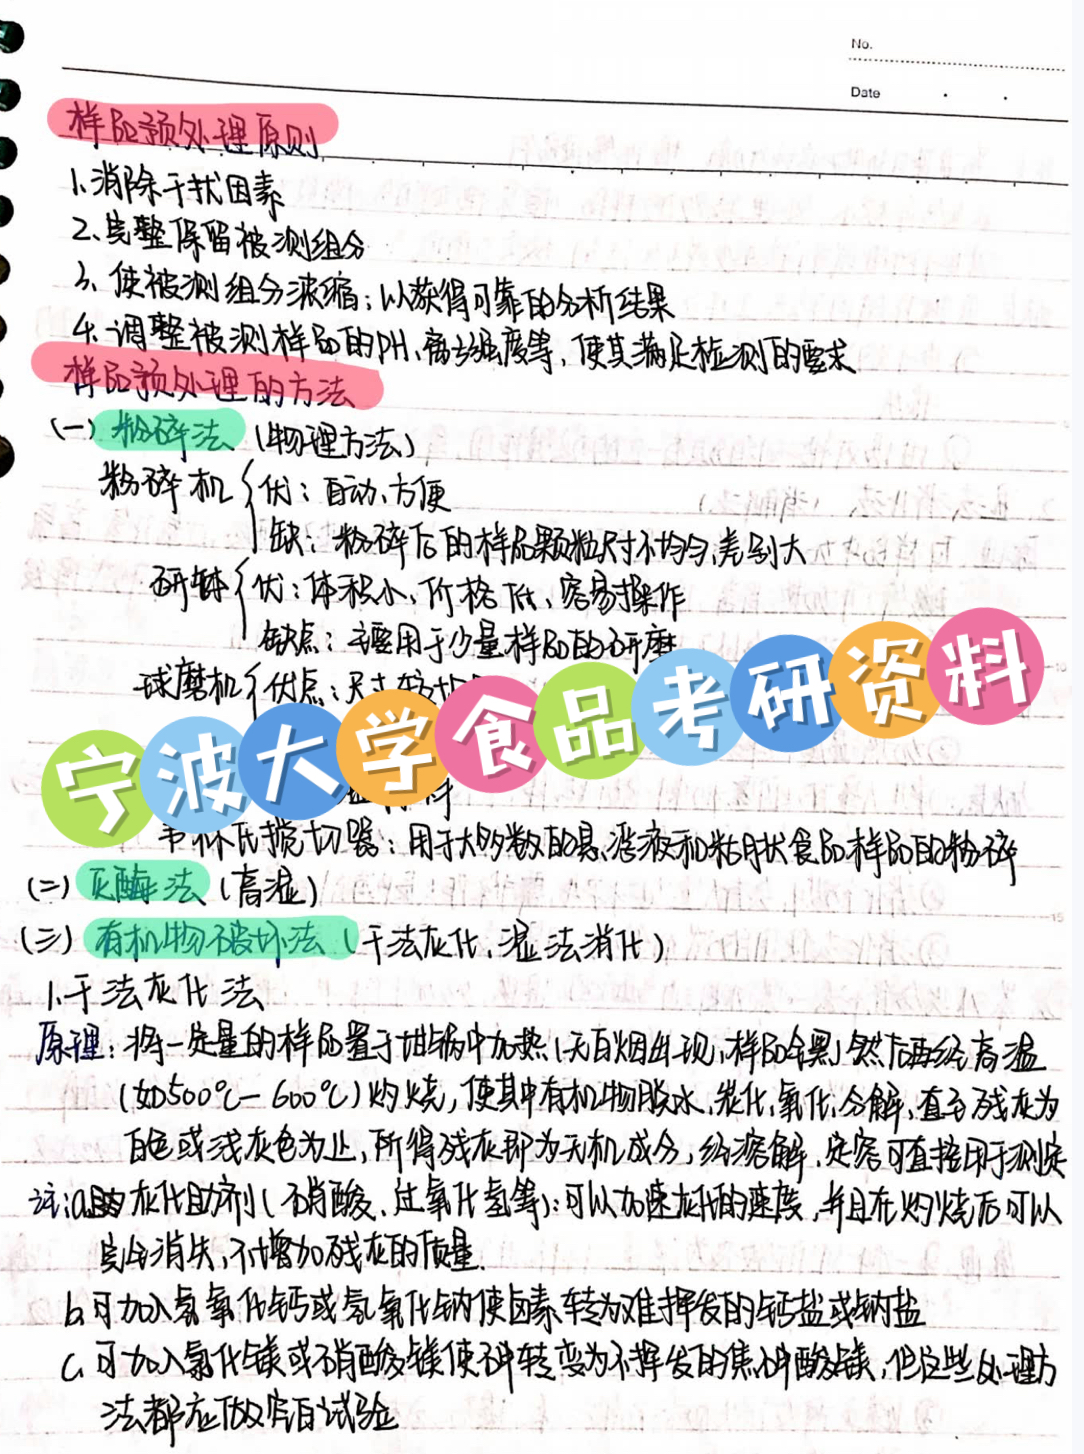 No.
Date
样品预处理原则
1.消除干扰因素
2.完整保留被测组分
3.使被测组分浓缩;以获得可靠的分析结果
4.调整被测样品的PH、离子强度等,使其满足检测的要求
样品预处理的方法
(一)粉碎法(物理方法)
粉碎机 优:自动、方便
缺:粉碎后的样品颗粒尺寸不均匀,差别大
研钵 优:体积小、价格低、容易操作
缺点:主要用于少量样品的研磨
球磨机 优点:尺寸较
宁波大学食品考研资料
韦林氏搅切器:用于大多数的悬浮液和粘状食品样品的粉碎
(二)灭酶法(高温)
(三)有机物破坏法(干法灰化、湿法消化)
1.干法灰化法
原理:将一定量的样品置于坩埚中加热(无白烟出现,样品全黑)然后再经高温
(如500℃-600℃)灼烧,使其中有机物脱水、炭化、氧化、分解,直至残灰为
白色或浅灰色为止,所得残灰即为无机成分,经溶解、定容可直接用于测定
注:a. 灰化助剂(硝酸、过氧化氢等):可以加速灰化的速度,并且在灼烧后可以
完全消失,不增加残灰的质量.
b.可加入氢氧化钙或氢氧化钠使卤素转为难挥发的钙盐或钠盐
c.可加入氯化镁或硝酸镁使砷转变为不挥发的焦砷酸镁,但这些处理方
法都应做空白试验